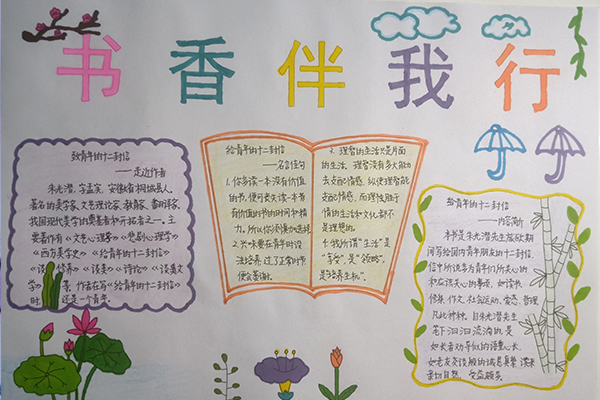 书香伴我行
致青年的十二封信
——走近作者
朱光潜，字孟实，安徽省桐城县人。
著名的美学家、文艺理论家、教育家、翻译家，
我国现代美学的奠基者和开拓者之一。主
要著作有《文艺心理学》《悲剧心理学》
《西方美学史》《给青年的十二封信》
《谈修养》《谈美》《诗论》《谈美文
学》等，作者在写《给青年的十二封信》
时，还是一个青年。
给青年的十二封信
——名言佳句
1.你多读一本没有价值
的书，便丧失读一本
有价值的书的时间和精
力。所以你须慎加选择
2.兴味要在青年时设
法培养，过了正常时节
便会萎谢。
3.理智的生活只是片面
的生活。理智没有多大能力
去支配情感，纵使理智能
支配情感，而理性胜于
情的生活和文化都不
是理想的。
4.我所谓“生活”是
“享受”，是“领略”，
是“培养生机”。
给青年的十二封信
——内容简介
本书是朱光潜先生旅欧期
间写给国内青年朋友的十二封信。
信中所说多为青年们所关心的
和应该关心的事项，如读书、
修养、作文、社会运动、恋爱、哲理
凡此种种。自朱光潜先生
笔下汩汩流淌的是
如长者劝导似的语重心长，
如老友交谈般的诚恳真挚，读来
亲切自然，受益颇多